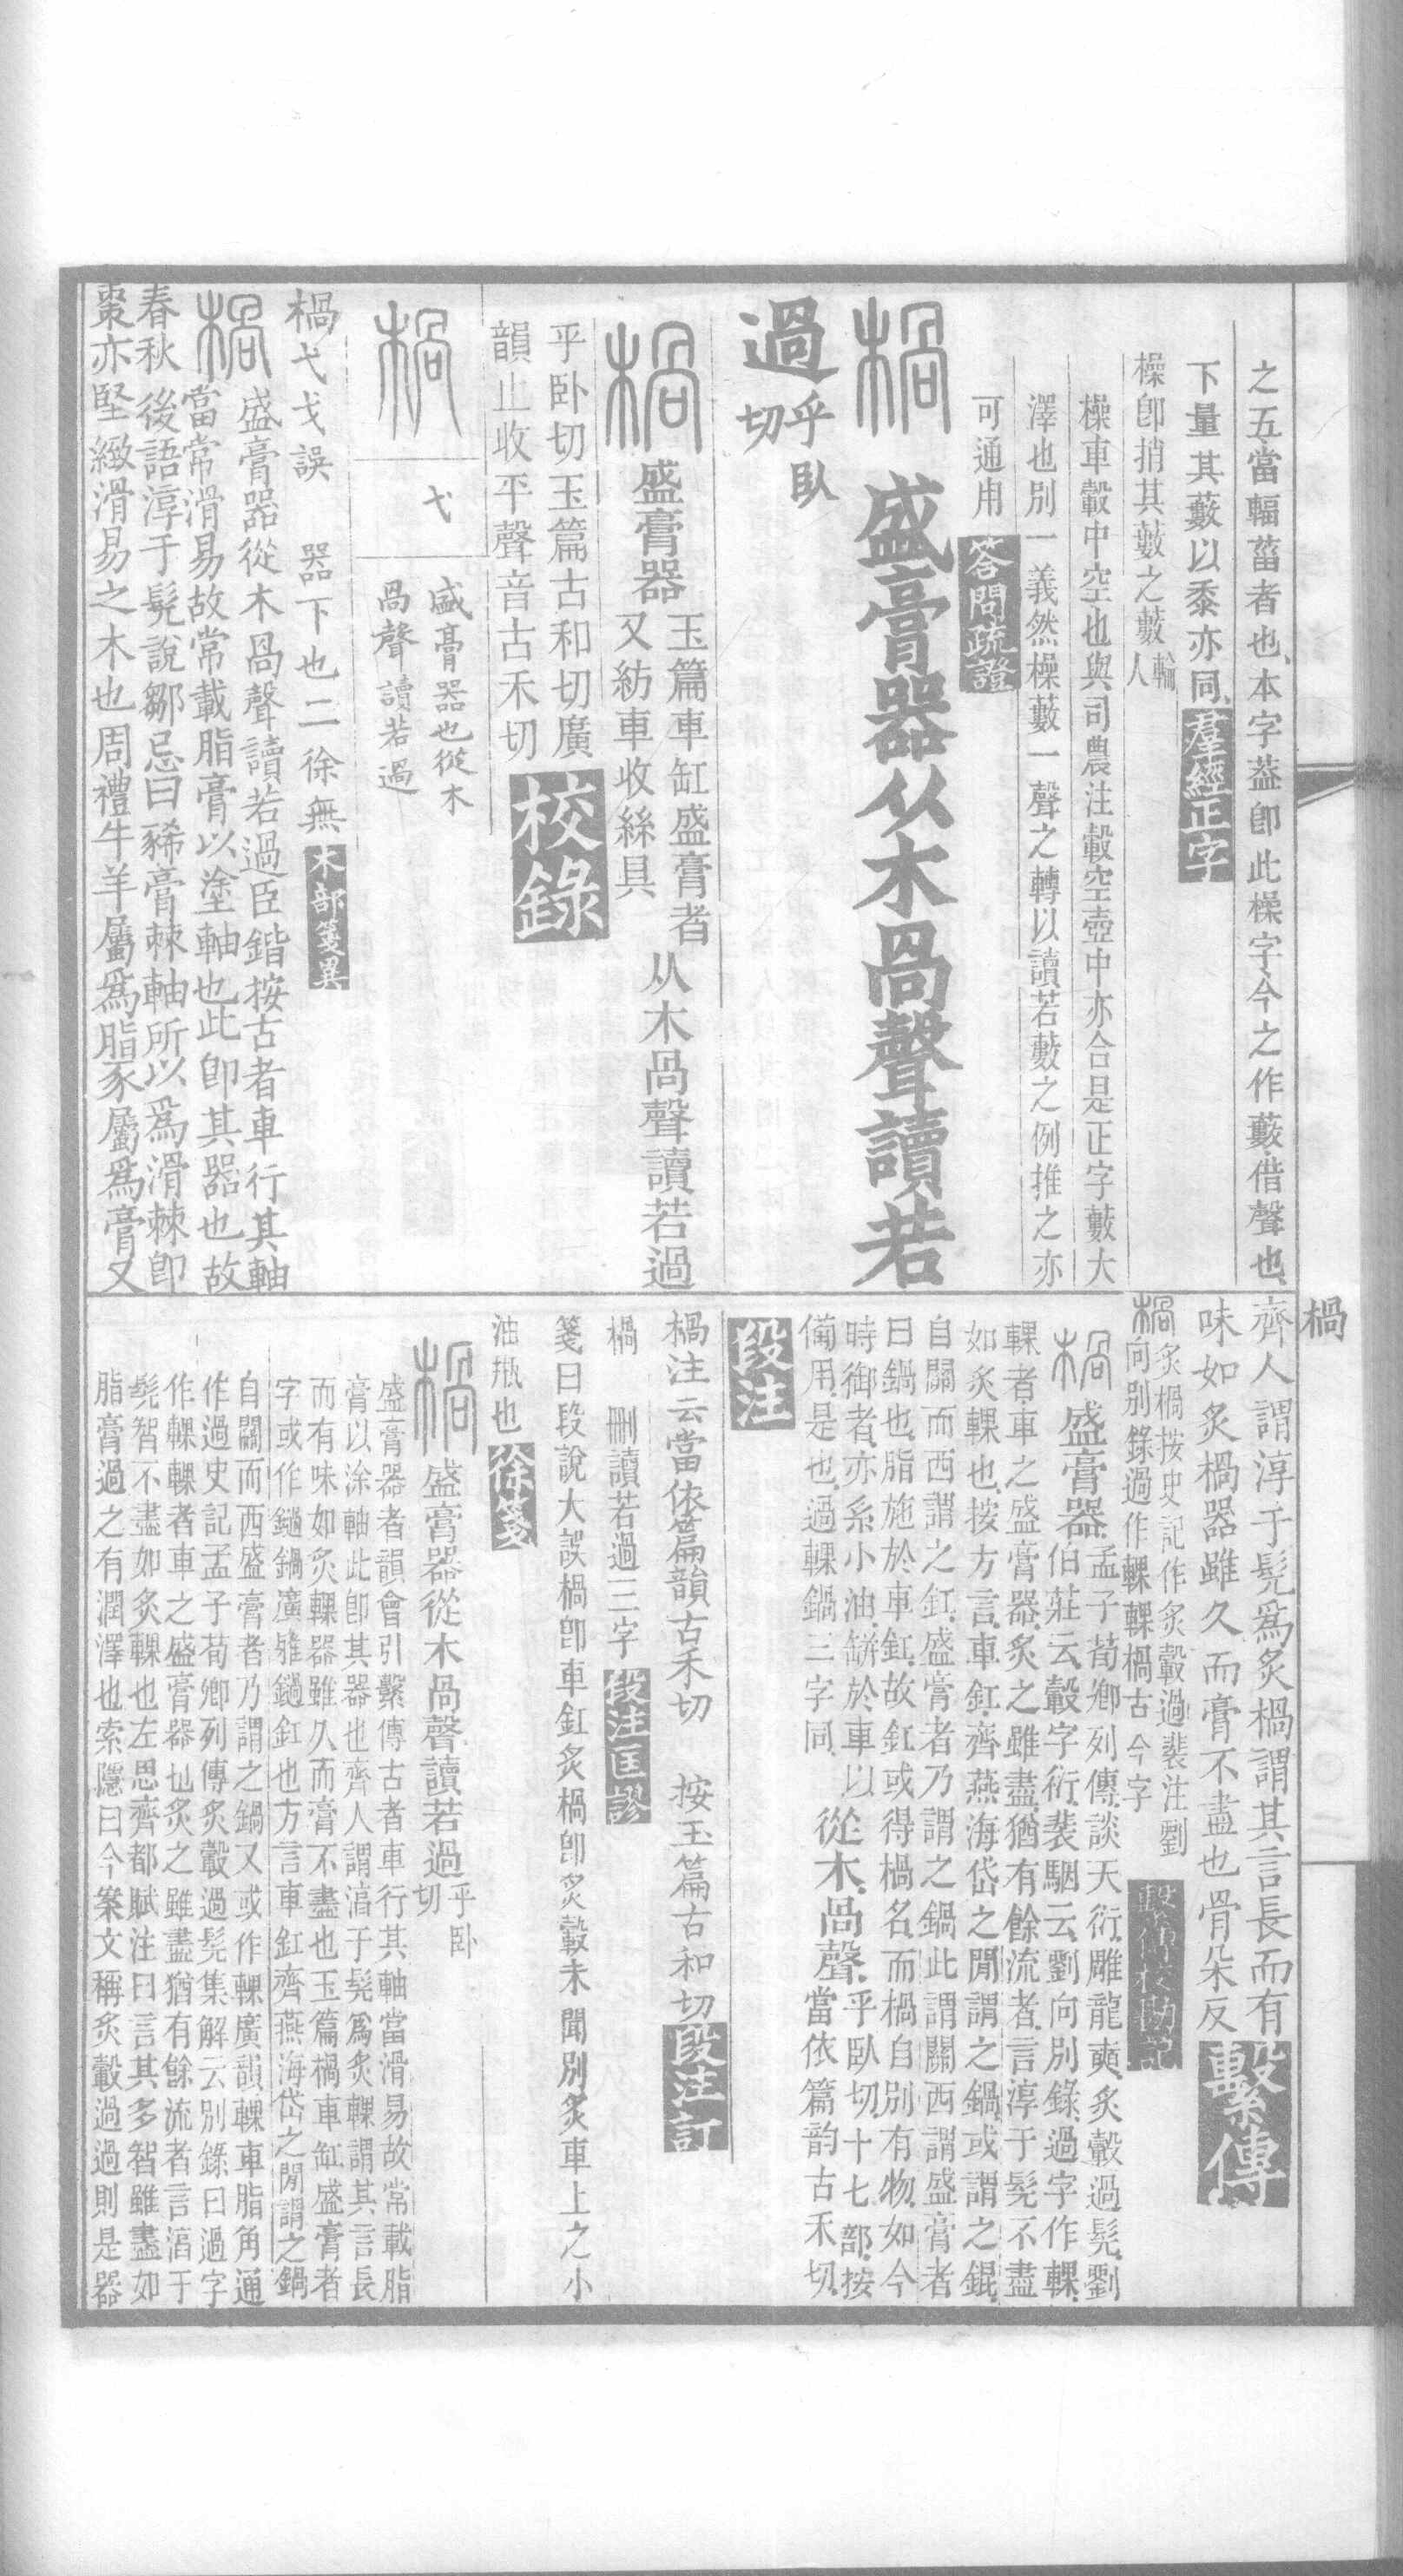 之五當輻菑者也本字葢卽此橾字今之作藪借聲也
下量其藪以黍亦同羣經正字
橾卽捎其藪之藪輪人
橾車轂中空也與司農注轂空壺中亦合是正字藪大
澤也別一義然橾藪一聲之轉以讀若藪之例推之亦
可通用答問疏證
楇盛膏器从木咼聲讀若
過乎臥切
楇盛膏器玉篇車缸盛膏者又紡車收絲具从木咼聲讀若過
乎卧切玉篇古和切廣
韻止收平聲音古禾切校錄
楇
弋
盛膏器也從木
咼聲讀若過
楇弋戈誤 器下也二徐無木部箋異
楇盛膏器從木咼聲讀若過臣鍇按古者車行其軸
當常滑易故常載脂膏以塗軸也此卽其器也故
春秋後語淳于髡說鄒忌曰豨膏棘軸所以爲滑棘卽
棗亦堅緻滑易之木也周禮牛羊屬爲脂豕屬爲膏又
楇
齊人謂淳于髡爲炙楇謂其言長而有
味如炙楇器雖久而膏不盡也骨朵反繫傳
楇炙楇按史記作炙轂過裴注劉
向別錄過作輠輠楇古今字繫傳校勘記
楇盛膏器孟子荀卿列傳談天衍雕龍奭炙轂過髡劉
伯莊云轂字衍裴駰云劉向別錄過字作輠
輠者車之盛膏器炙之雖盡猶有餘流者言淳于髡不盡
如炙輠也按方言車釭齊燕海岱之閒謂之鍋或謂之錕
自關而西謂之釭盛膏者乃謂之鍋此謂關西謂盛膏者
曰鍋也脂施於車釭故釭或得楇名而楇自別有物如今
時御者亦系小油缾於車以
備用是也過輠鍋三字同從木咼聲乎臥切十七部按
當依篇韵古禾切
段注
楇注云當依篇韻古禾切 按玉篇古和切段注訂
楇 刪讀若過三字段注匡謬
箋曰段說大誤楇卽車釭炙楇卽炙轂未聞別炙車上之小
油缾也徐箋
楇盛膏器從木咼聲讀若過乎卧切
盛膏器者韻會引繫傳古者車行其軸當滑易故常載脂
膏以涂軸此卽其器也齊人謂淳于髡爲炙輠謂其言長
而有味如炙輠器雖久而膏不盡也玉篇楇車缸盛膏者
字或作鐹鍋廣雅鐹釭也方言車釭齊燕海岱之閒謂之鍋
自關而西盛膏者乃謂之鍋又或作輠廣韻輠車脂角通
作過史記孟子荀卿列傳炙轂過髡集解云別錄曰過字
作輠輠者車之盛膏器也炙之雖盡猶有餘流者言淳于
髡智不盡如炙輠也左思齊都賦注曰言其多智雖盡如
脂膏過之有潤澤也索隱曰今案文稱炙轂過過則是器